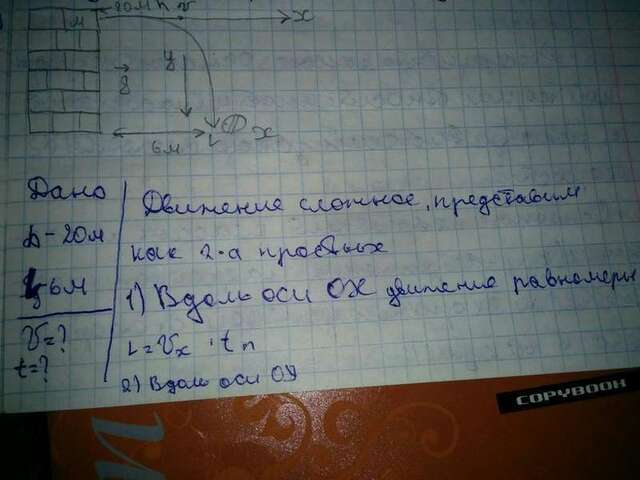 20м h v
x
м
y
g
x
L
6м
Дано
h - 20м
L 6м
V=?
t=?
Движение сложное, представим
как 2-а простых
1) Вдоль оси OX движение равномерн
L = Vx · tп
2) Вдоль оси OY
COPYBOOK